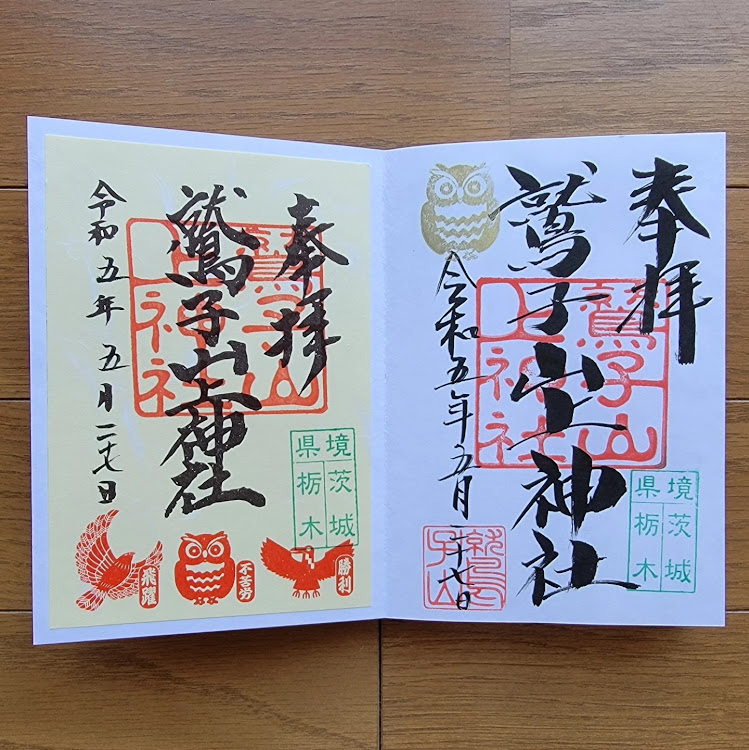 奉拝
鷲子山上神社
鷲子山上神社
境茨城
県栃木
令和五年五月二十七日
鷲子山
奉拝
鷲子山上神社
鷲子山上神社
境茨城
県栃木
令和五年五月二十七日
勝利
不苦労
飛躍